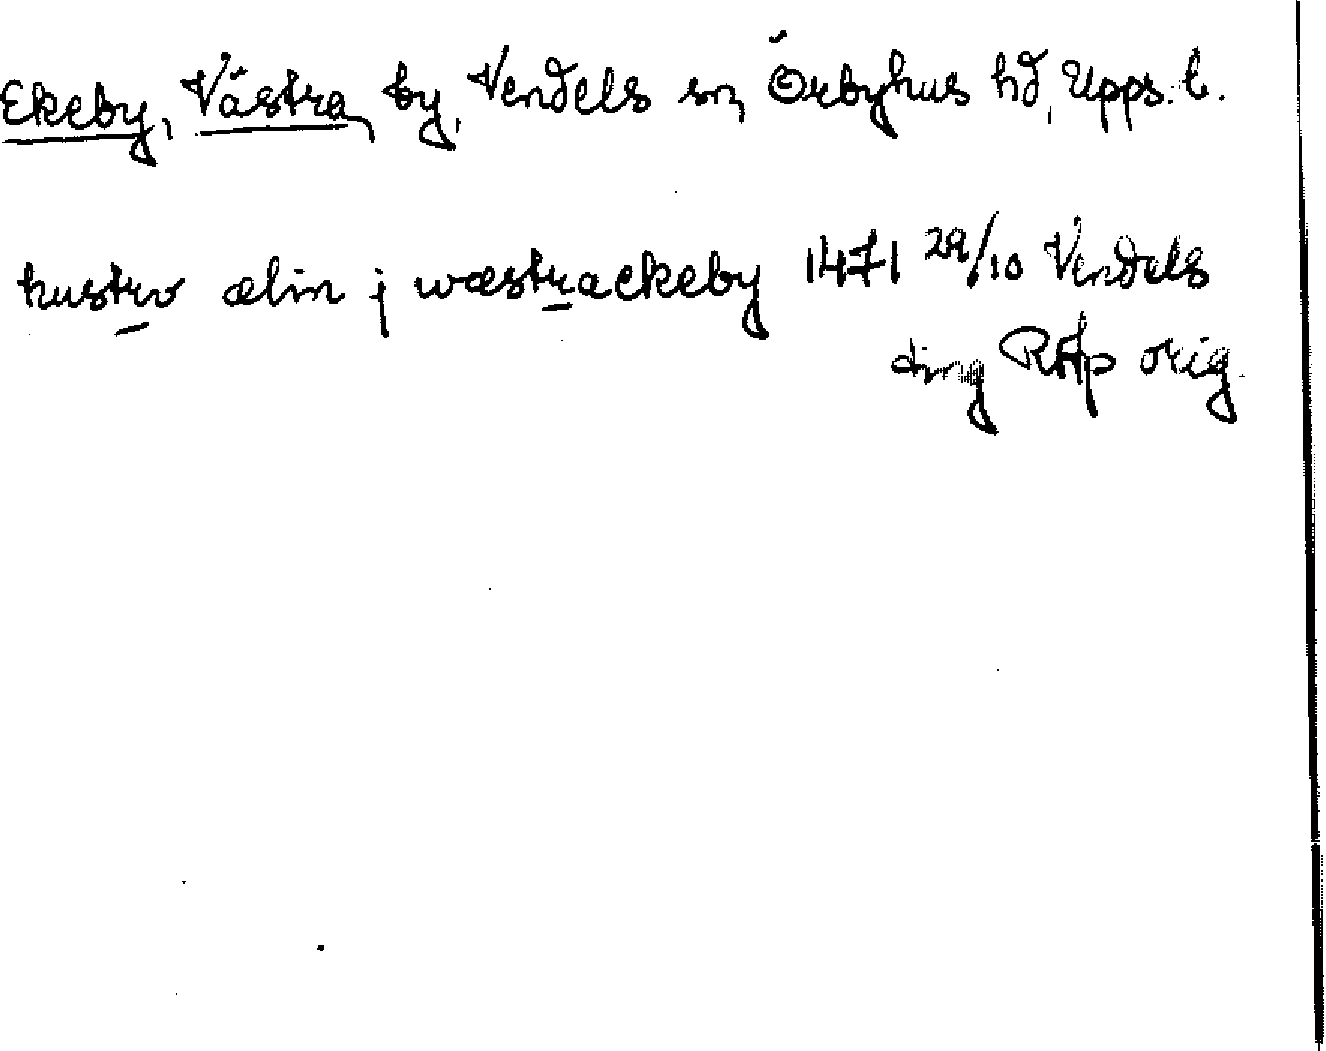 Ekeby, Västra, by, Vendels sn, Örbyhus hd, Upps. l.
hustrv ælin j wæstraekeby 1471 29/10 Vendels
ting RAp orig.